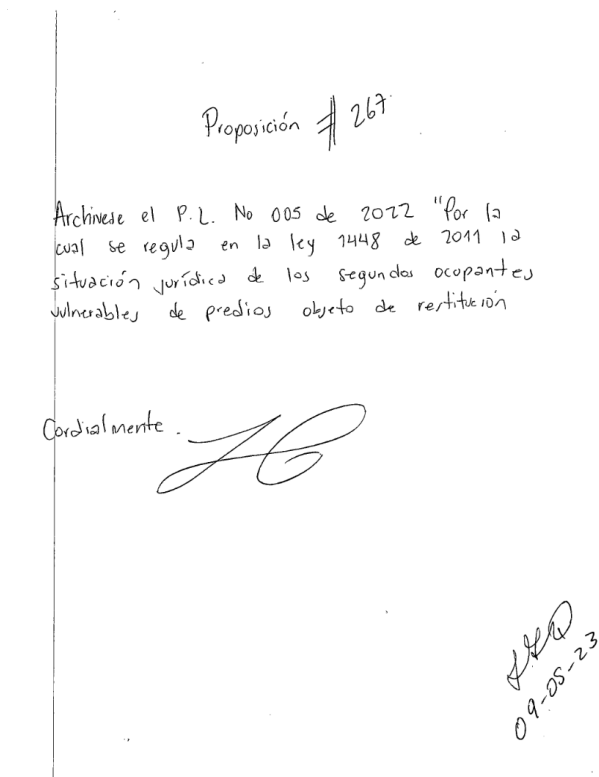 Proposición # 267
Archivese el P.L. No 005 de 2022 "Por la
cual se regula en la ley 1448 de 2011 la
situación jurídica de los segundos ocupantes
vulnerables de predios objeto de restitución
Cordialmente.
09-05-23